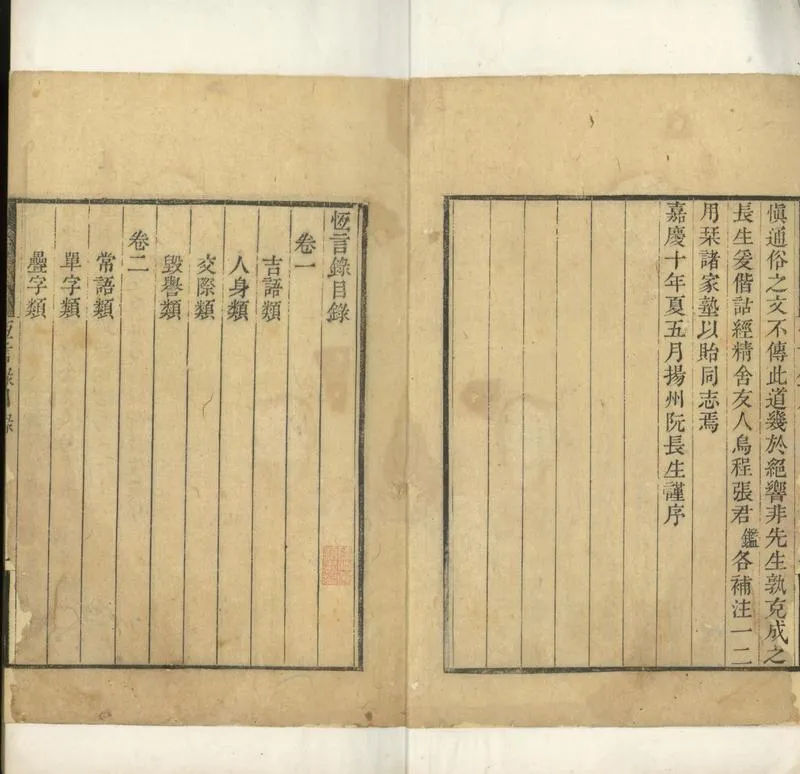 愼通俗之文不傳此道幾於絕響非先生孰克成之
長生爰偕詁經精舍友人烏程張君鑑各補注一二
用栞諸家塾以貽同志焉
嘉慶十年夏五月揚州阮長生謹序
恆言錄目錄
卷一
吉語類
人身類
交際類
毀譽類
卷二
常語類
單字類
疊字類